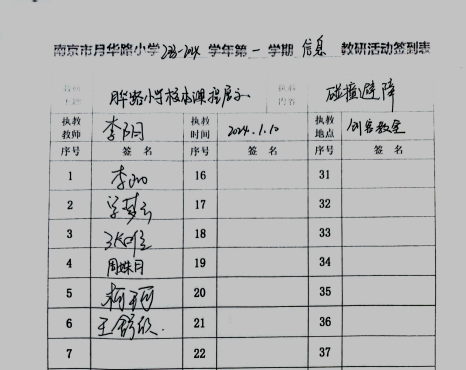 南京市月华路小学2023-2024学年第一学期 信息 教研活动签到表
教研主题 月华路小学校本课程展示 执教内容 碰撞避障
执教教师 李 执教时间 2024.1.10 执教地点 创客教室
序号 签 名 序号 签 名 序号 签 名
1 李 16 31
2 17 32
3 18 33
4 周姝日 19 34
5 20 35
6 王舒欣 21 36
7 22 37